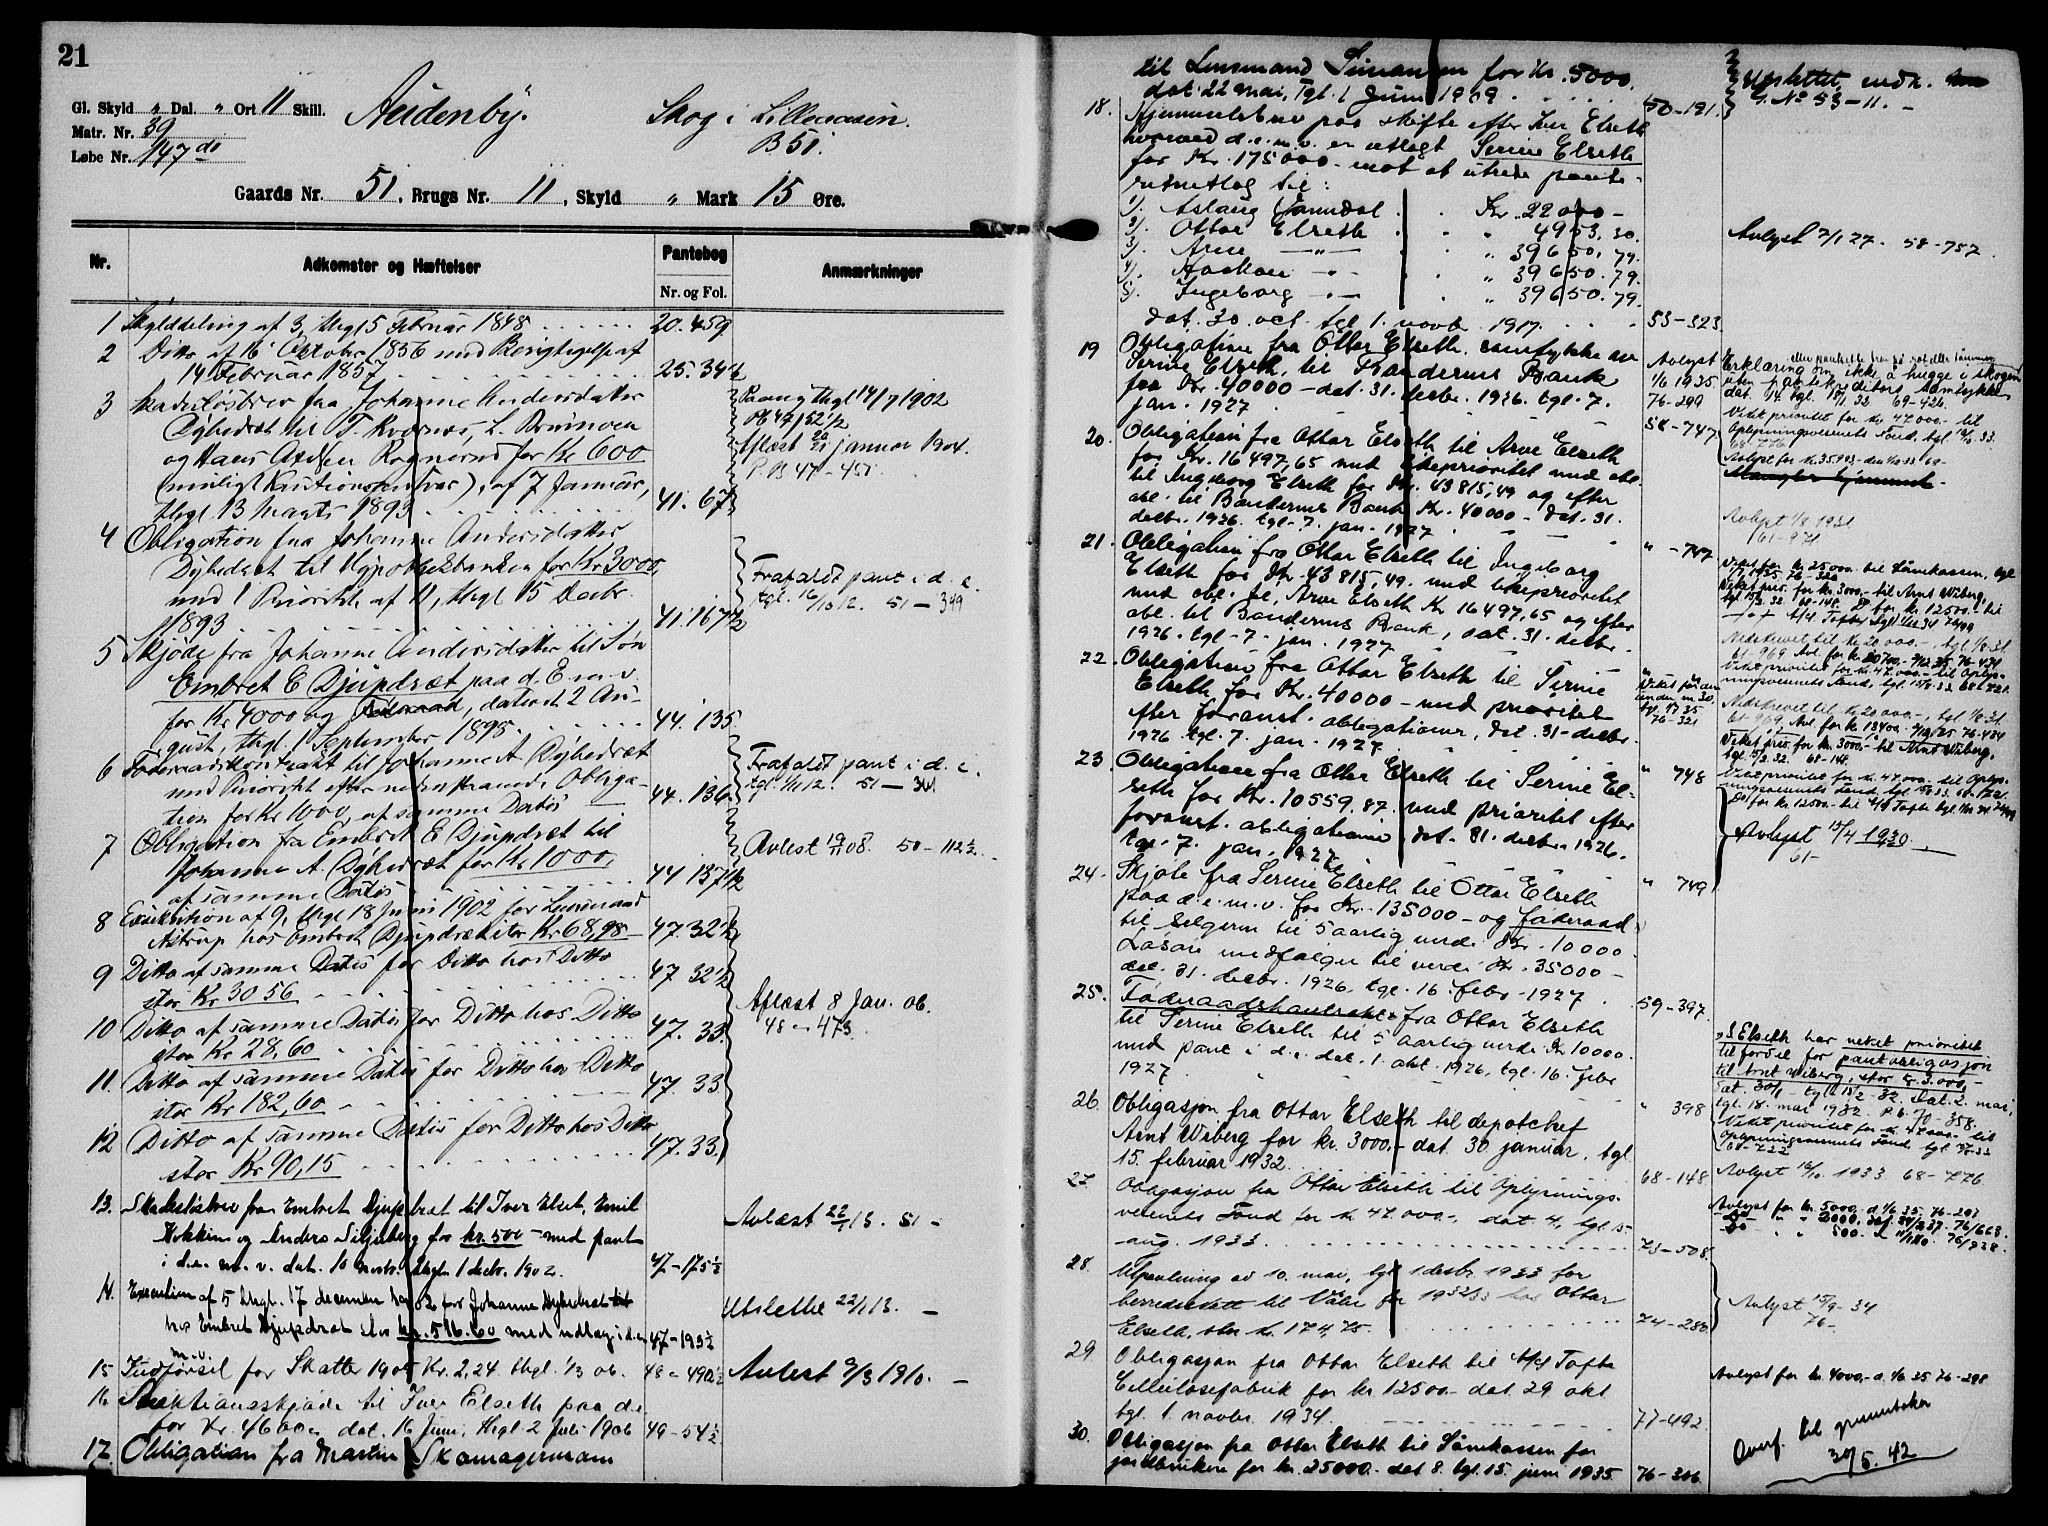 21
Gl. Skyld " Dal. " Ort 11 Skill.
Matr. Nr. 39
Løbe Nr. 147 do
Audenby. Skog i Lilleaasen.
B 51.
Gaards Nr. 51, Brugs Nr. 11, Skyld " Mark 15 Øre.
Nr. Adkomster og Hæftelser Pantebog Anmærkninger
Nr. og Fol.
1 Skylddeling af 3, thgl 5 Februar 1848 20.459
2 Ditto af 16 October 1856 med Berigtigelse af
14 Februar 1857 25.34½
3 Skadesløsbrev fra Johanne Andersdatter
Dybedræt til T. Kværnes, L. Bruunoen
og Hans Axelsen Rognerud for Kr 600
(muligt Kautionsansvar), af 7 Januar,
thgl 13 Marts 1893 41.67
Paaany thgl 14/7 1902
Aflæst 26/21 januar 1904.
P.B 47-451
4 Obligation fra Johanne Andersdatter
Dybedræt til Hypothekbanken for Kr 3000,
med 1 Prioritet af 11, thgl 15 Decbr.
1893 41.167½
Frafaldt pant i d. e.
tgl. 16/10 12. 51-399
5 Skjøde fra Johanne Andersdatter til Søn
Embret E Djupdræt paa d. E m. v.
for Kr 4000 og Føderaad, dateret 2 Au-
gust, thgl 1 September 1895 44.135
6 Føderaadskontrakt til Johanne A Dybedræt
med Prioritet efter nedenstaaende Obliga-
tion for Kr 1000, af samme Datis 44.136
Frafaldt pant i d. e.
tgl. 1/11 12. 51-
7 Obligation fra Embret E Djupdræt til
Johanne A. Dybedræt for Kr 1000,
af samme Datis 44 137½
Avlest 19/11 08. 50-112½.
8 Execution af 9, thgl 18 Juni 1902 for Lensmand
Astrup hos Embret Djupdræt stor Kr 68,98 47.32½
9 Ditto af samme Datis for Ditto hos Ditto
stor Kr 30 56 47 32½
Aflæst 8 Jan. 06.
48-473.
10 Ditto af samme Datis for Ditto hos Ditto
stor Kr 28,60 47.33.
11. Ditto af samme Datis for Ditto hos Ditto
stor Kr 182,60 47.33
12 Ditto af samme Datis for Ditto hos Ditto
stor Kr 90,15 47.33.
13. Skadesløsbrev fra Embret Djupdræt til Iver Elset, Emil
Hokkim og Anders Siljuberg for kr. 500 - med pant
i d.e. m. v. dat. 10 novbr. thgl. 1 decbr. 1902. 47-175½
Avlæst 22/1 13. 51-
14. Execution af 5 thgl. 17 december 1902 for Johanne Dybedræt
hos Embret Djupdræt stor kr. 516.60 med udlæg i d.e.
m.v. 47-193½
Utslettet 22/1 13. -
15 Tudførsel for Skatter 1905 Kr. 2,24 thgl. 1/3 06. 48-490½
Avlest 9/3 1910. -
16 Auktionsskjøde til Iver Elseth paa d.e
for Kr. 4600 dat. 16 Juni, thgl. 2 Juli 1906 49-54½
17. Obligation fra Martin Skomagermoen
til Lensmand Simensen for Kr. 5000.
dat. 22 mai, Tgl. 1 Juni 1909. 50-191.
Utslettet, indh.
G. No 53-11.-
18. Hjemmelsbrev paa skifte efter Iver Elseth
hvorved d.e.m.v. er utlegt Serine Elseth
for Kr. 175000 - mot at utrede pante-
retsutlæg til:
1). Aslaug Vanndal Kr. 22000-
2). Ottar Elseth " 4953,30.
3). Arne -"- " 39650,79.
4). Haakon -"- " 39650.79.
5). Ingeborg -"- " 39650.79.
dat. 30. oct. tgl. 1. novb. 1917. 53-323
Avlyst 7/1 27. 58-757.
19 Obligation fra Ottar Elseth, samtykke av
Serine Elseth, til Randernes Bank
for Kr. 40000 - dat. 31. decbr. 1926. tgl. 7.
jan. 1927 58-747
Avlyst
1/6 1935.
76-299
Erklæring om ikke å hugge i skogen
uten pantekreditors samtykke
dat. 14. tgl. 18/11.32 69-426.
Veket prioritet for kr 47000.- til
Oplysningsvesenets Fond. tgl. 15/8.33.
68-776
20. Obligation fra Ottar Elseth til Arne Elseth
for Kr. 16497,65 med likeprioritet med obl.
til Ingeborg Elseth for Kr. 43815,49 og efter
obl. til Bændernes Bank Kr. 40000 - dat. 31.
decbr. 1926. tgl. 7. jan. 1927 " - 747
Avlyst 1/8 1931
61-971
21. Obligation fra Ottar Elseth til Ingeborg
Elseth for Kr. 43815,49. med likeprioritet
med obl. til Arne Elseth Kr 16497,65 og efter
obl. til Bændernes Bank, dat. 31. decbr.
1926. tgl. 7. jan. 1927 "
Veket for kr 25000.- til Lånekassen, tgl
1/7 1935 76-320
Veket prio. for kr. 3000.- til Arnt Wiberg,
tgl. 15/2.32. 68-148. Do for kr. 12500.- til
22. Obligation fra Ottar Elseth til Serine
Elseth for Kr. 40000 - med prioritet
efter foranst. obligationer, dat. 31. decbr.
1926 tgl. 7. jan. 1927. "
Nedskrevet til kr 20000.-, tgl. 1/8.31.
61-969
Veket prio. for kr. 3000.- til Arnt Wiberg.
tgl. 15/2.32. 68-148
23. Obligation fra Ottar Elseth til Serine El-
seth for Kr. 10559.87. med prioritet efter
foranst. obligationer, dat. 31. decbr. 1926.
tgl. 7. jan. 1927 " 748
Avlyst 15/4 1930.
61-
24. Skjøte fra Serine Elseth til Ottar Elseth
paa d.e.m.v. for Kr. 135000 - og føderaad
til selgeren til 5 aarlig verdi Kr. 10000.
Løsøre medfølger til verdi Kr. 35000-
dat. 31. decbr. 1926, tgl. 16. febr. 1927 59-397.
" 749
25. Føderaadskontrakt fra Ottar Elseth
til Serine Elseth til 5 aarlig verdi Kr 10000.
med pant i d.e. dat. 1. okt. 1926, tgl. 16. febr
1927 " 398
S. Elseth har veket prioritet
til fordel for pantobligasjon
til Arnt Wiberg, stor kr. 3.000,-
dat. 30/1 tgl. 15/2-32. Dat. 2. mai,
tgl. 18. mai 1932. P.b. 70-358.
Veket prioritet for kr. 47000.- til
Oplysningsvesenets Fond. tgl. 15/8-33
68-722
26. Obligasjon fra Ottar Elseth til depotchef
Arnt Wiberg for kr. 3000.- dat. 30. januar, tgl.
15. februar 1932. 68-148
Avlyst 16/10 1933 68-776
27. Obligasjon fra Ottar Elseth til Oplysnings-
vesenets Fond for kr 47.000.-, dat. 4, tgl. 15-
aug. 1933 73-508.
Avlyst for kr. 5000.- d. 1/6 35. 76-297
28. Utpantning av 10. mai, tgl. 1 decbr 1933 for
herredsskatt til Våler for 1932/33 hos Ottar
Elseth, stor kr. 174,75. 74-280.
Avlyst 15/9-34
76-
29 Obligasjon fra Ottar Elseth til A/S Tofte
Cellulosefabrik for kr 12500.- dat 29 okt
tgl. 1. novbr. 1934. 77-492.
Avlyst for kr. 4000.- d. 1/6 35 76-298
30. Obligasjon fra Ottar Elseth til Lånekassen for
jordbrukere for kr. 25000.- dat 8. tgl. 15. juni 1935. 76-306
Overf. til grunnboken
30/5. 42